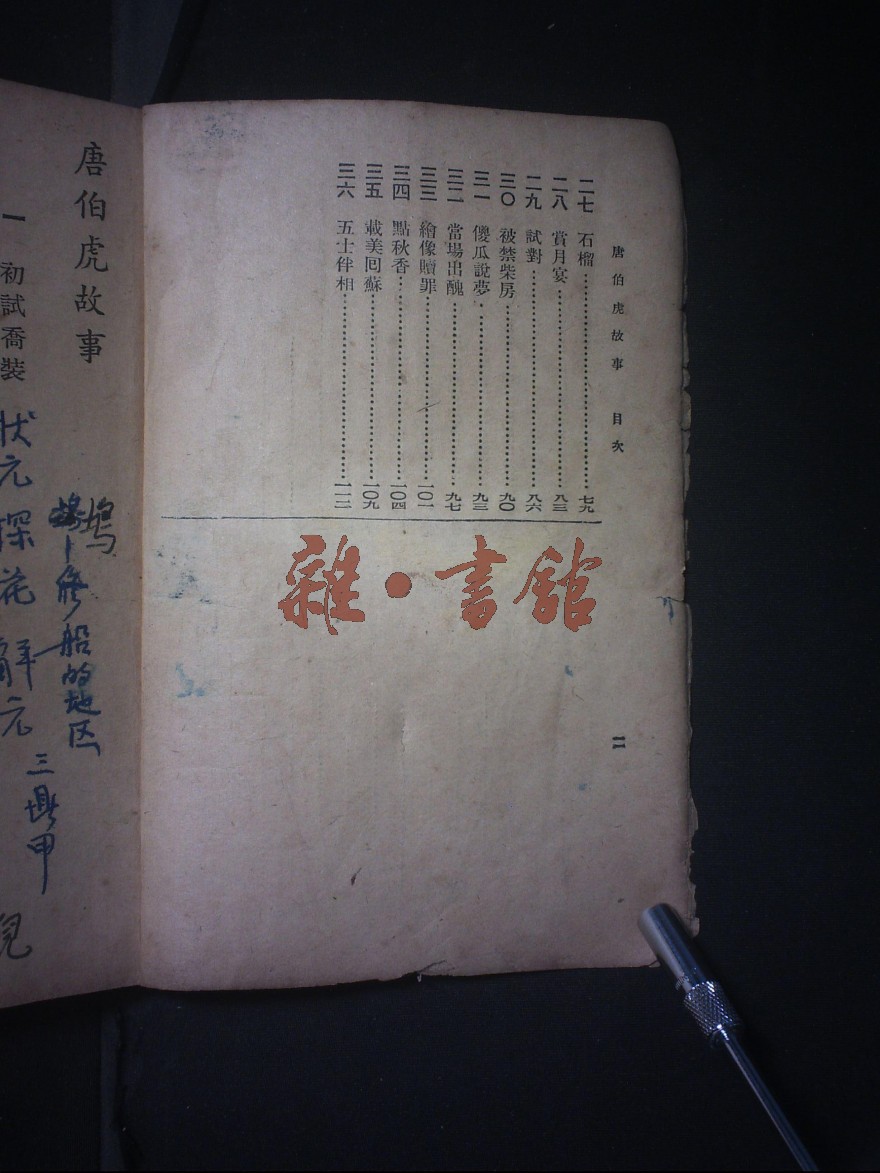 唐伯虎故事 目次
二七 石榴 七九
二八 賞月宴 八三
二九 試對 八六
三〇 被禁柴房 九〇
三一 傻瓜說夢 九三
三二 當場出醜 九七
三三 繪像贖罪 一〇一
三四 點秋香 一〇四
三五 載美回蘇 一〇九
三六 五士伴相 一一二
二
雜•書舘
唐伯虎故事
塢
修船的地区
一 初試喬裝
三鼎甲
状元探花解元